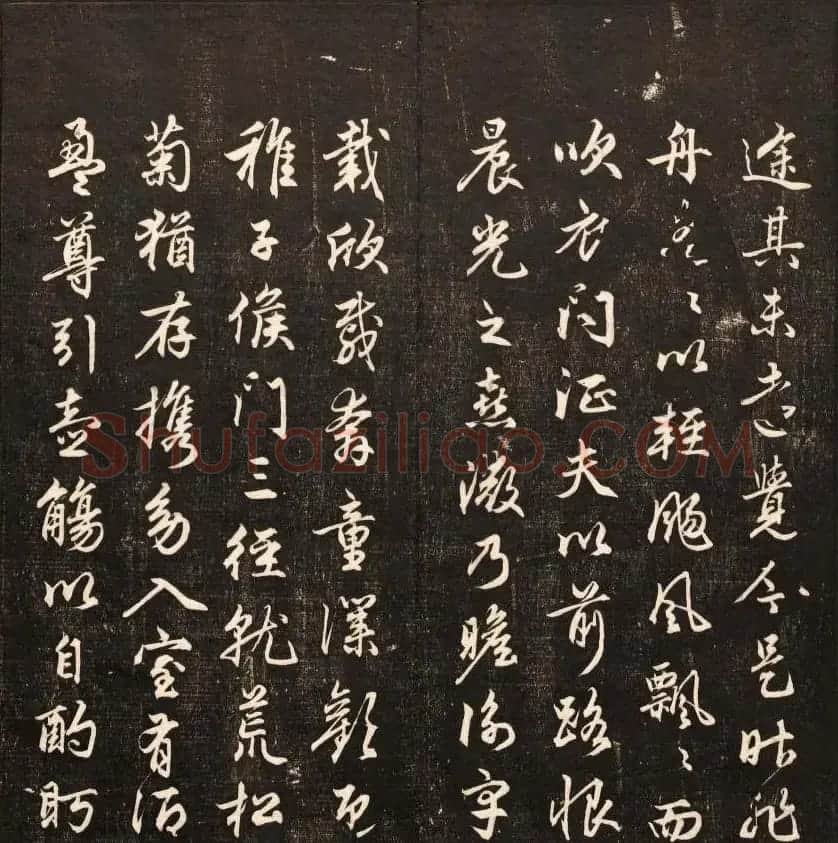 途其未遠覺今是昨非
舟遙々以輕颺風飄々而
吹衣問征夫以前路恨
晨光之熹微乃瞻衡宇
載欣載奔童僕歡迎
稚子候門三徑就荒松
菊猶存携幼入室有酒
盈尊引壺觴以自酌眄
Shufaziliao.COM